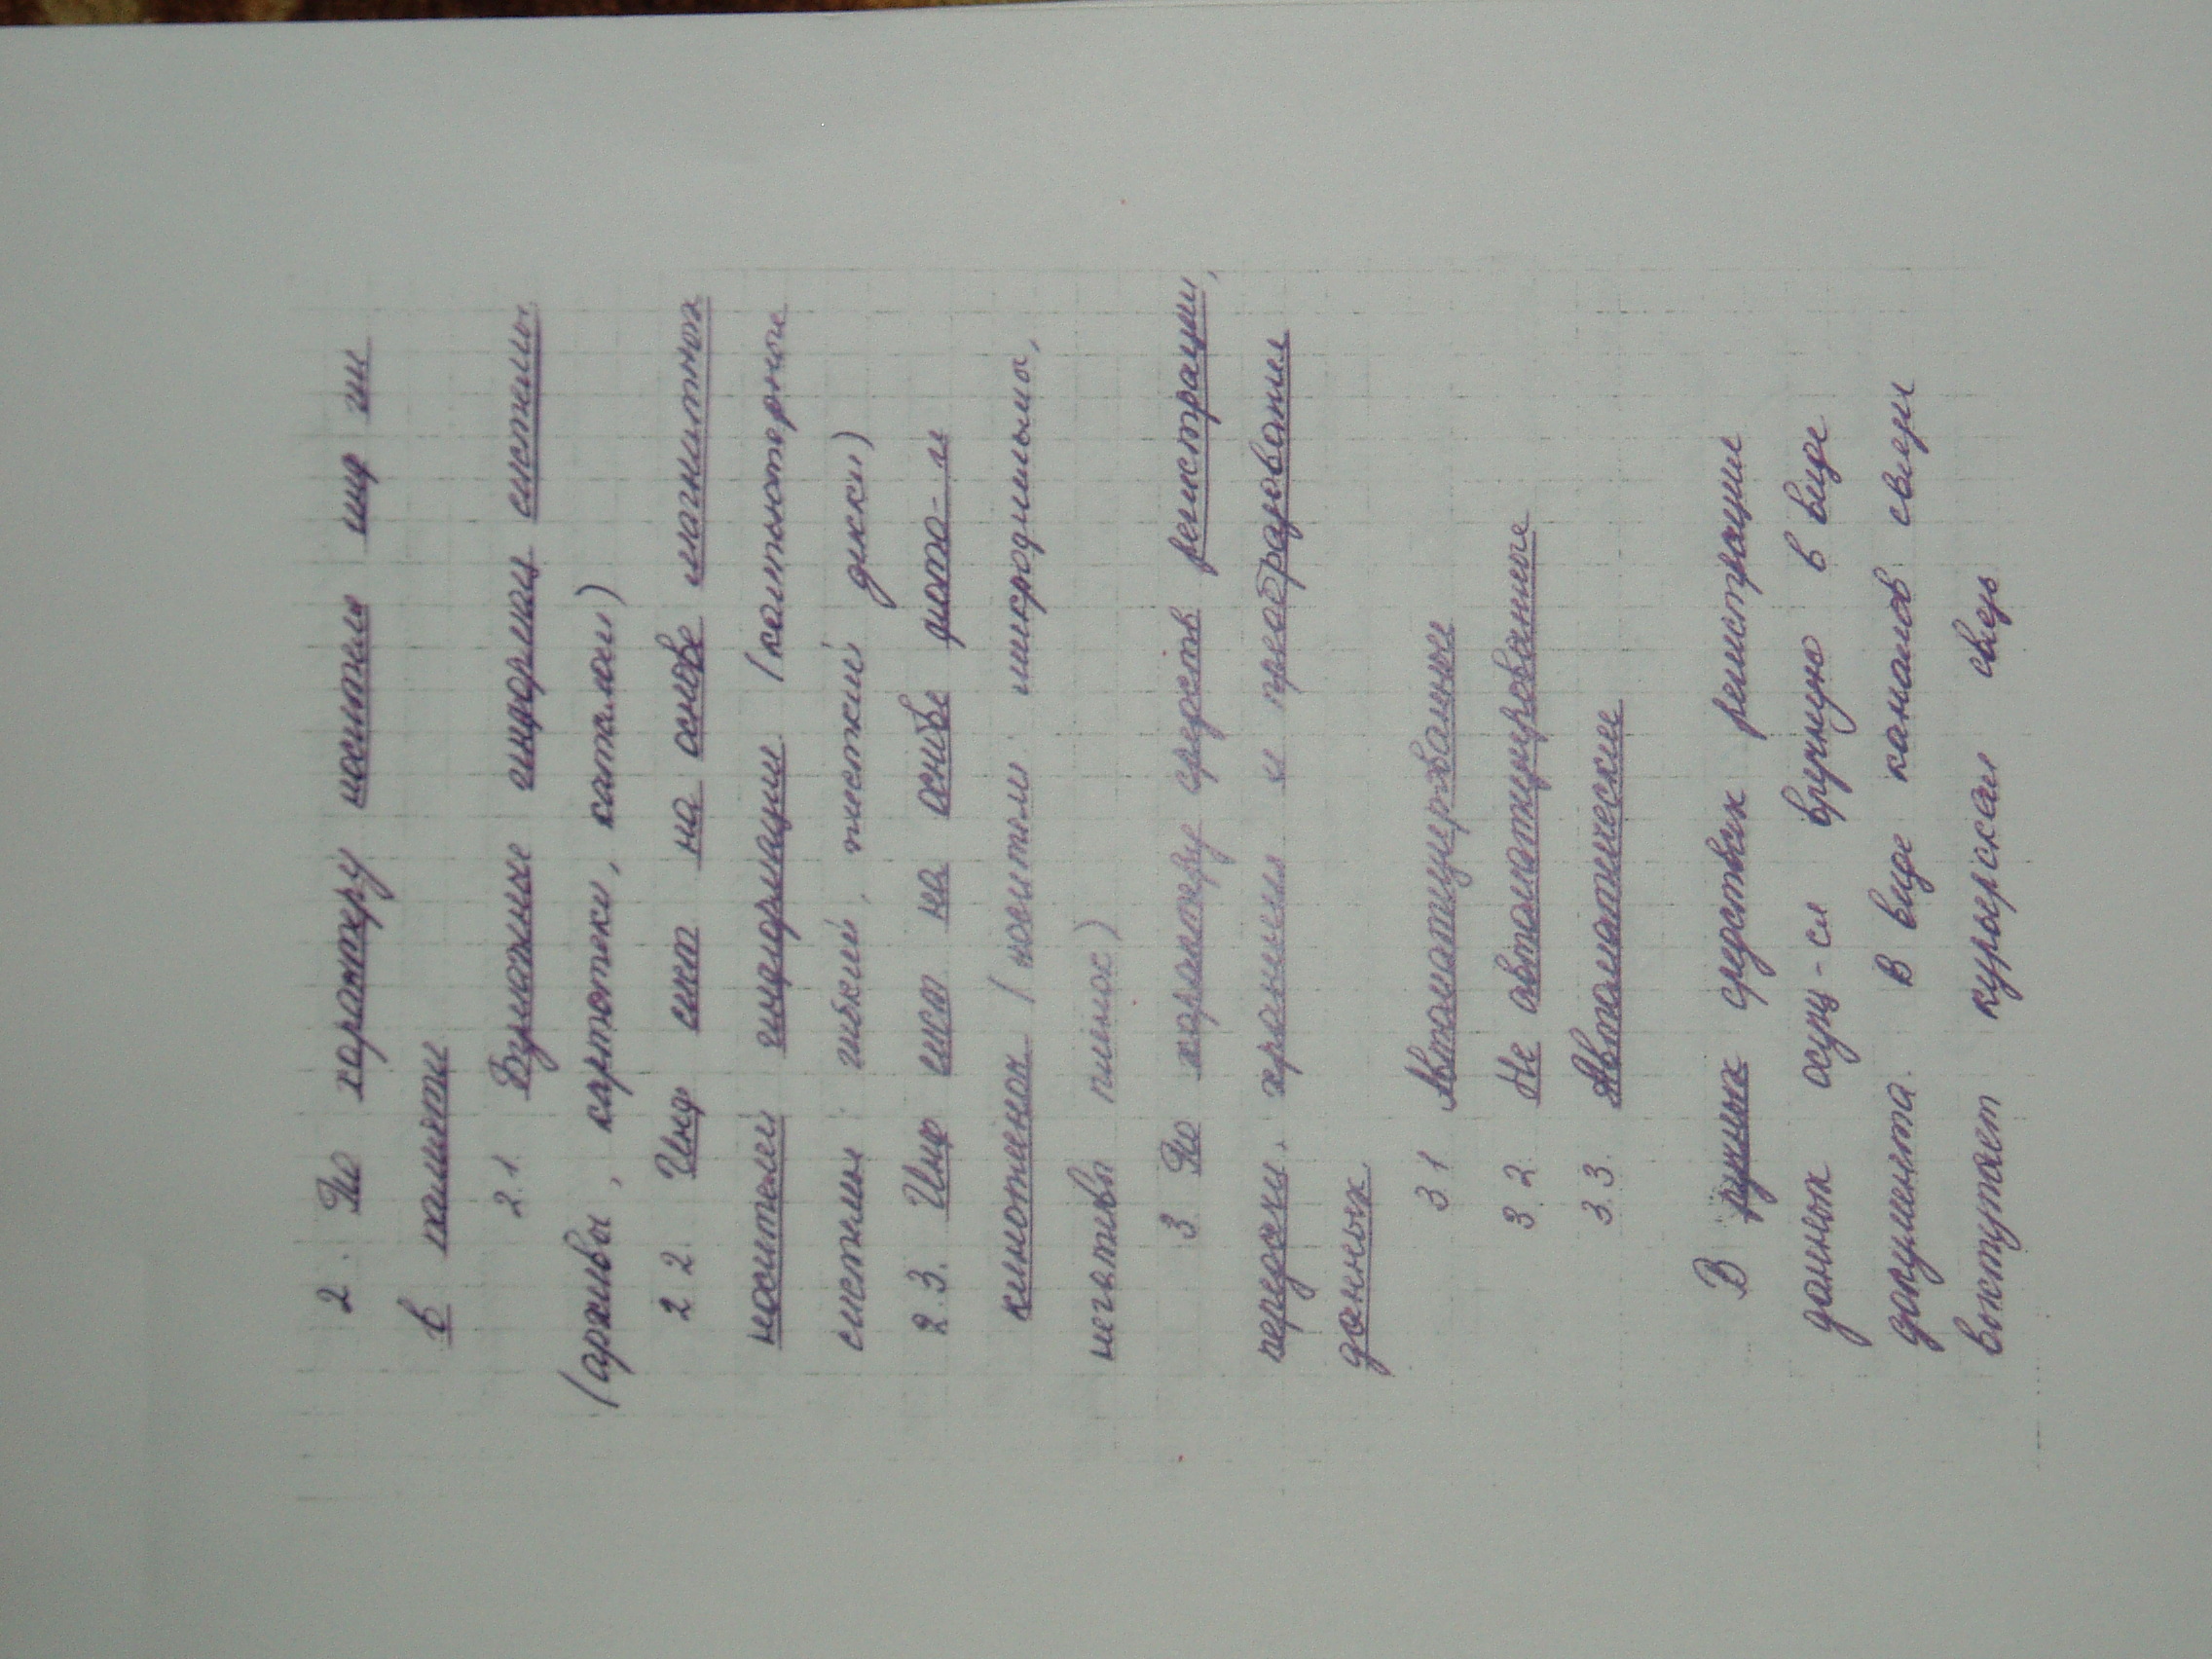 2. По характеру носителя инф-ии
в памяти
2.1 Бумажные информац системы
(архивы, картотеки, каталоги)
2.2. Инф сист на основе магнитных
носителей информации (компьютерные
системы: гибкий, жесткий диски)
2.3. Инф сист на основе фото- и
кинопленок (носители: микрофильмы,
негативы пленок)
3 По характеру средств регистрации,
передачи, хранения и преобразования
данных
3.1 Автоматизированные
3.2 Не автоматизированные
3.3. Автоматические
В ручных средствах регистрации
данных осущ-ся вручную в виде
документа. В виде каналов связи
выступает курьерская связь